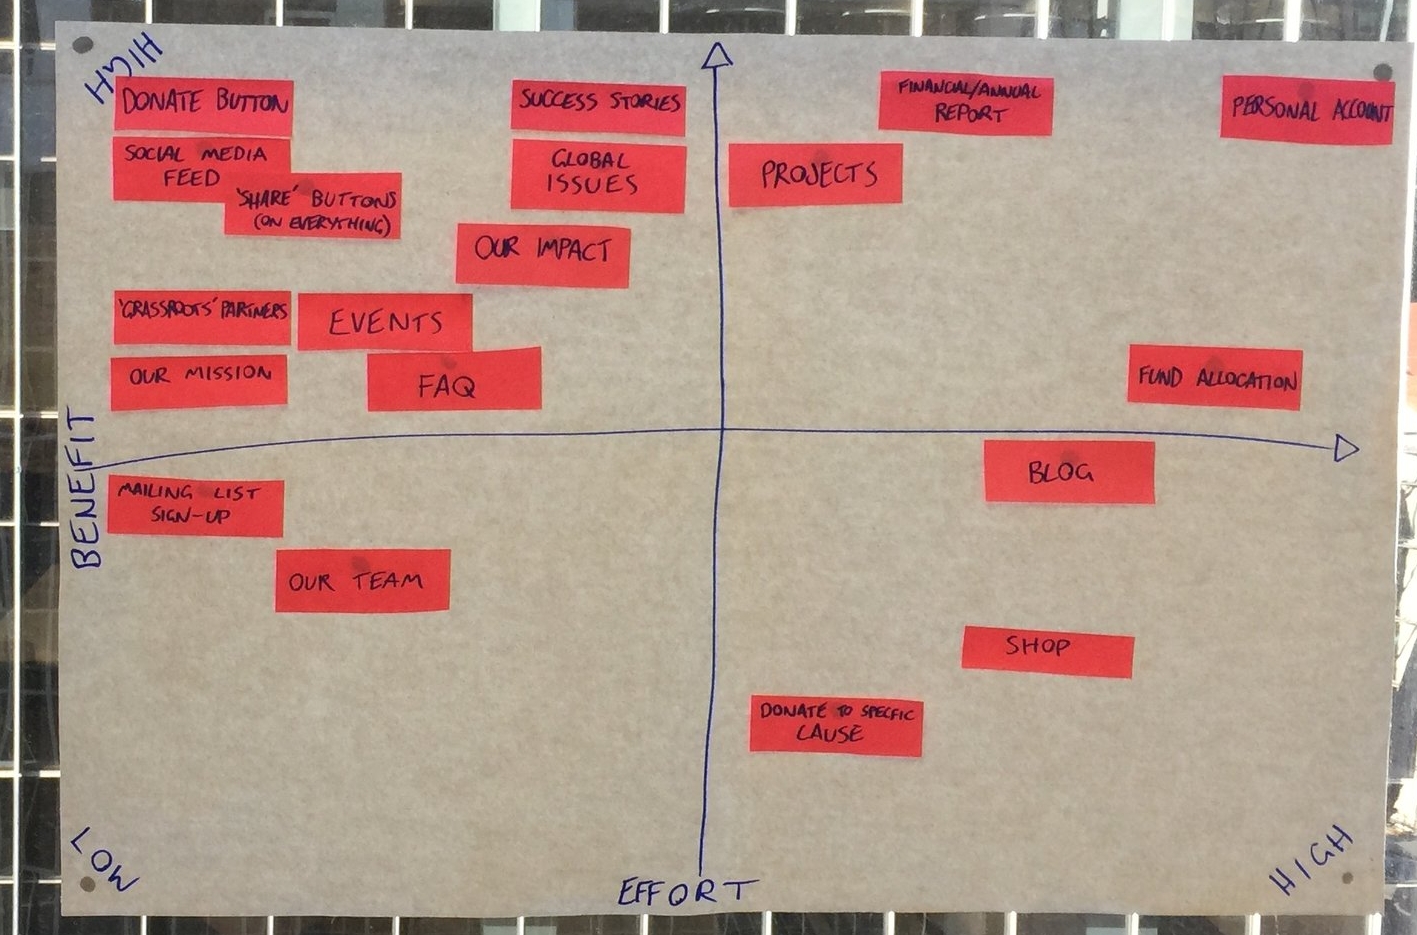 HIGH
DONATE BUTTON
SUCCESS STORIES
FINANCIAL/ANNUAL
REPORT
PERSONAL ACCOUNT
SOCIAL MEDIA
FEED
GLOBAL
ISSUES
PROJECTS
'SHARE' BUTTONS
(ON EVERYTHING)
OUR IMPACT
'GRASSROOTS' PARTNERS
EVENTS
OUR MISSION
FAQ
FUND ALLOCATION
BENEFIT
BLOG
MAILING LIST
SIGN-UP
OUR TEAM
SHOP
DONATE TO SPECFIC
CAUSE
LOW
EFFORT
HIGH